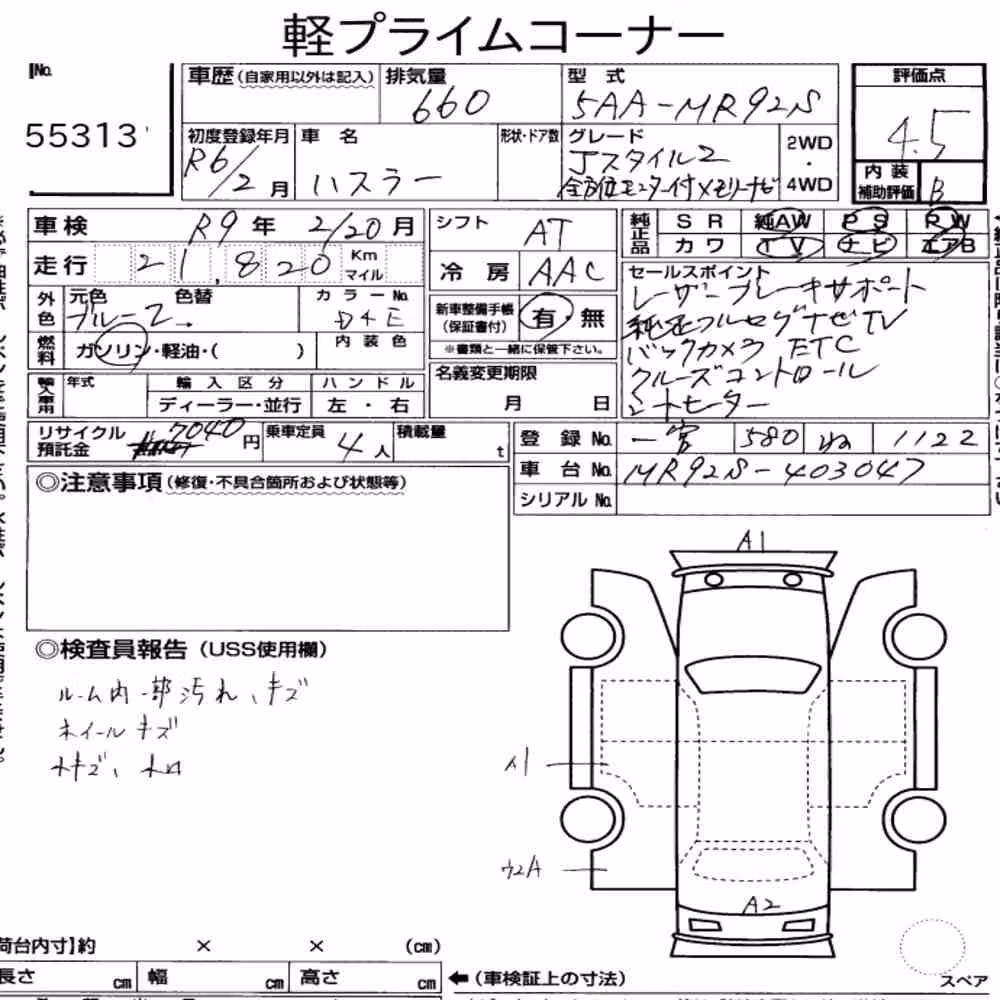 軽プライムコーナー
No.
55313
車歴(自家用以外は記入)
排気量
660
型式
5AA-MR92S
評価点
4.5
初度登録年月
R6/2月
車名
ハスラー
形状・ドア数
グレード
Jスタイル2
全方位モニター付メモリーナビ
2WD
・
4WD
内装
補助評価
B
車検
R9年 2/20月
シフト
AT
純正品
SR 純AW PS PW
カワ TV ナビ エアB
走行
21,820
Km
マイル
冷房
AAC
セールスポイント
レーザーブレーキサポート
純正フルセグナビTV
バックカメラ ETC
クルーズコントロール
シートヒーター
外色
元色
色替
ブルー2
カラーNo.
D4E
新車整備手帳
(保証書付)
有・無
※書類と一緒に保管下さい。
燃料
ガソリン・軽油・( )
内装色
名義変更期限
月 日
輸入車用
年式
輸入区分
ディーラー・並行
ハンドル
左・右
リサイクル
預託金
7040円
乗車定員
4人
積載量
t
登録No.
一宮 580 ね 1122
車台No.
MR92S-403047
シリアルNo.
◎注意事項(修復・不具合箇所および状態等)
◎検査員報告(USS使用欄)
ルーム内一部汚れ、キズ
ホイールキズ
A1
A1
A2
荷台内寸】約 × × (cm)
長さ cm 幅 cm 高さ cm
(車検証上の寸法)
スペア